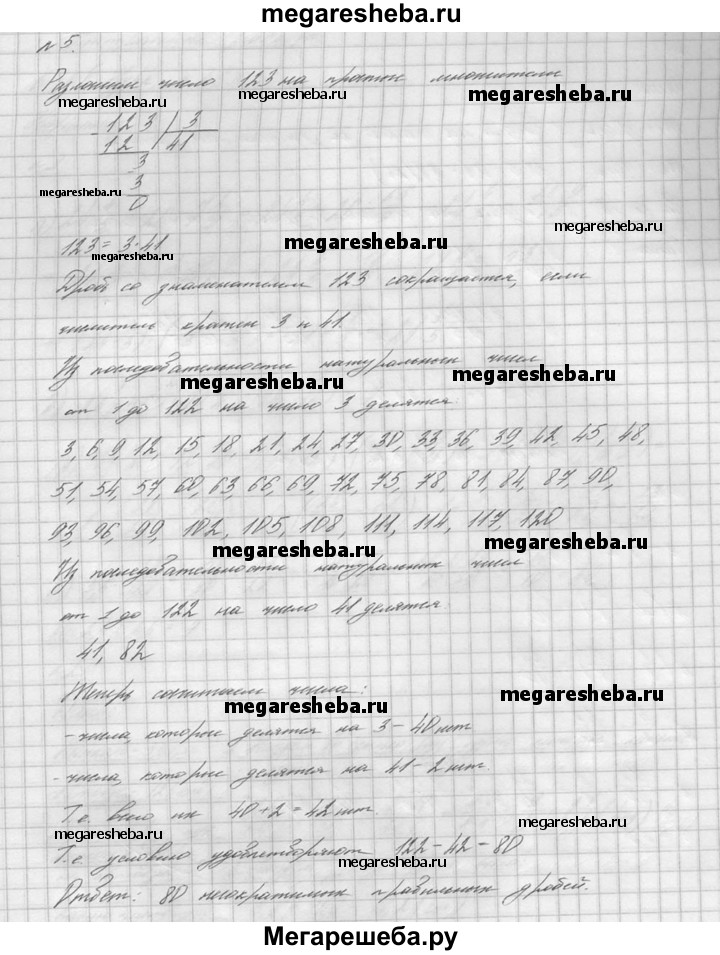 megaresheba.ru
№ 5.
Разложим число 123 на простые множители
megaresheba.ru megaresheba.ru megaresheba.ru
- 123 | 3
12 | 41
3
megaresheba.ru 3
0
megaresheba.ru
123 = 3·41 megaresheba.ru
megaresheba.ru
Дробь со знаменателем 123 сокращается, если
числитель кратен 3 и 41.
Из последовательности натуральных чисел
megaresheba.ru megaresheba.ru
от 1 до 122 на число 3 делятся:
3, 6, 9, 12, 15, 18, 21, 24, 27, 30, 33, 36, 39, 42, 45, 48,
51, 54, 57, 60, 63, 66, 69, 72, 75, 78, 81, 84, 87, 90,
93, 96, 99, 102, 105, 108, 111, 114, 117, 120
megaresheba.ru megaresheba.ru
Из последовательности натуральных чисел
от 1 до 122 на число 41 делятся
41, 82
Теперь сосчитаем числа:
megaresheba.ru megaresheba.ru
- числа, которые делятся на 3 – 40 шт
- числа, которые делятся на 41 – 2 шт.
Т.е. всего их 40 + 2 = 42 шт.
megaresheba.ru megaresheba.ru
Т.е. условию удовлетворяют 122 – 42 = 80
megaresheba.ru
Ответ: 80 несократимых правильных дробей.
Мегарешеба.ру